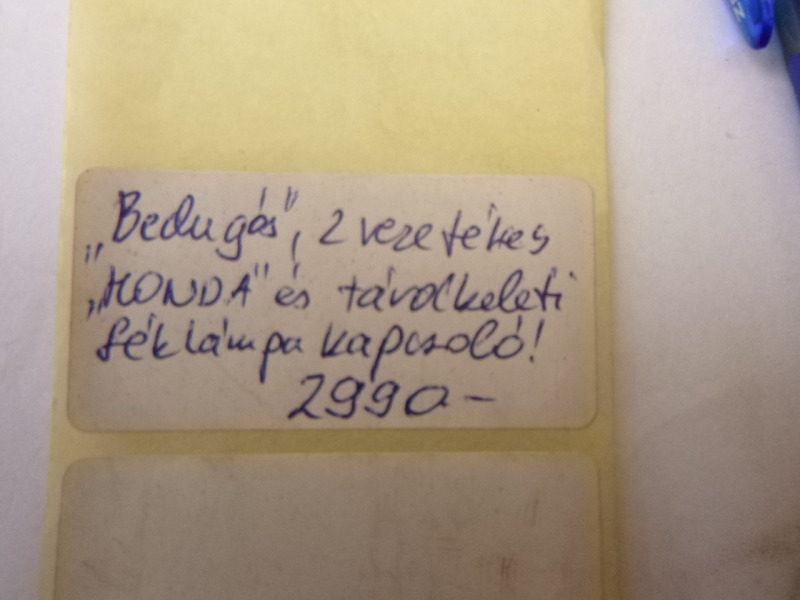 „Bedugós”, 2 vezetékes
„HONDA” és távolkeleti
féklámpa kapcsoló!
2990-